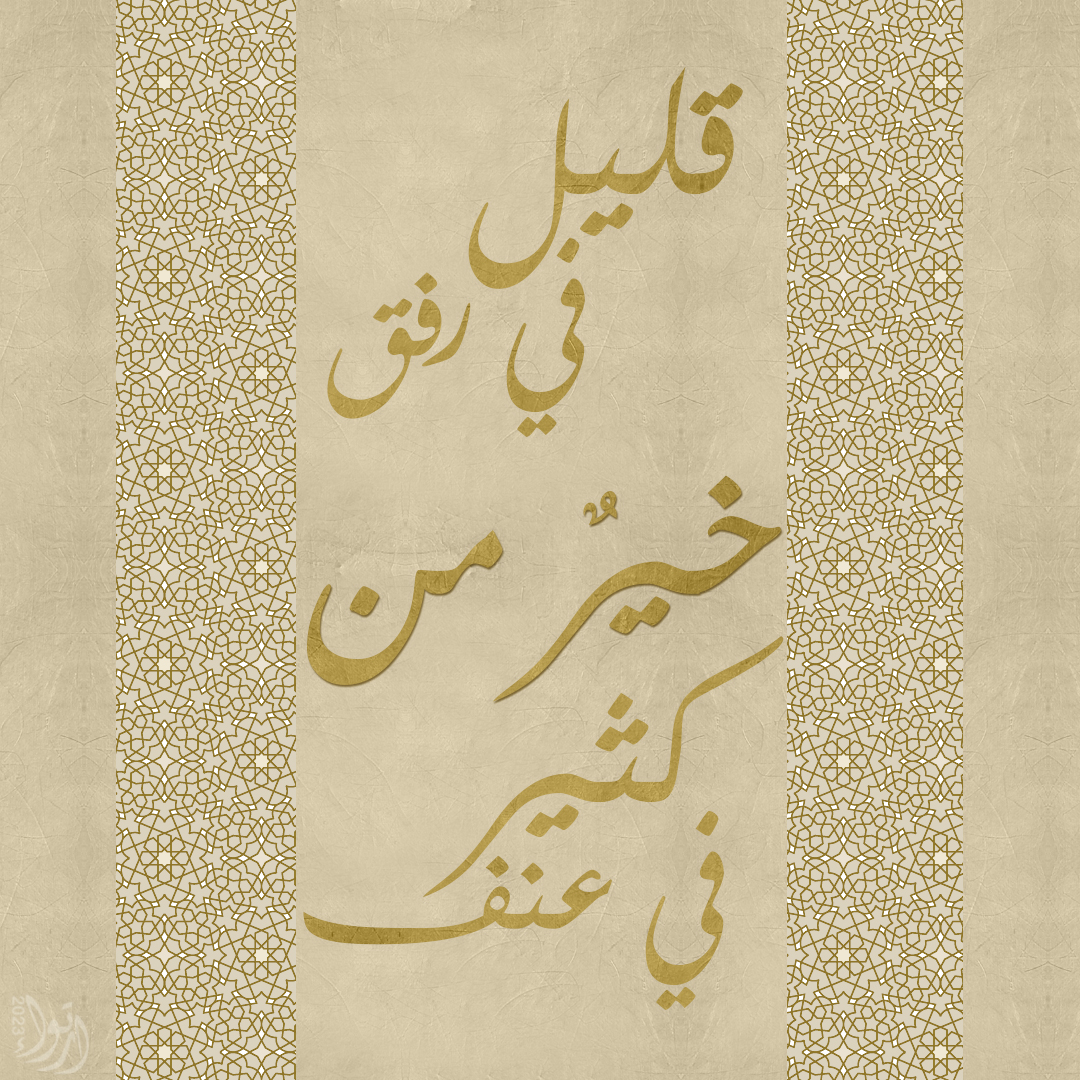 قليل
في رفق
خيرٌ من
كثير
في عنف
2023